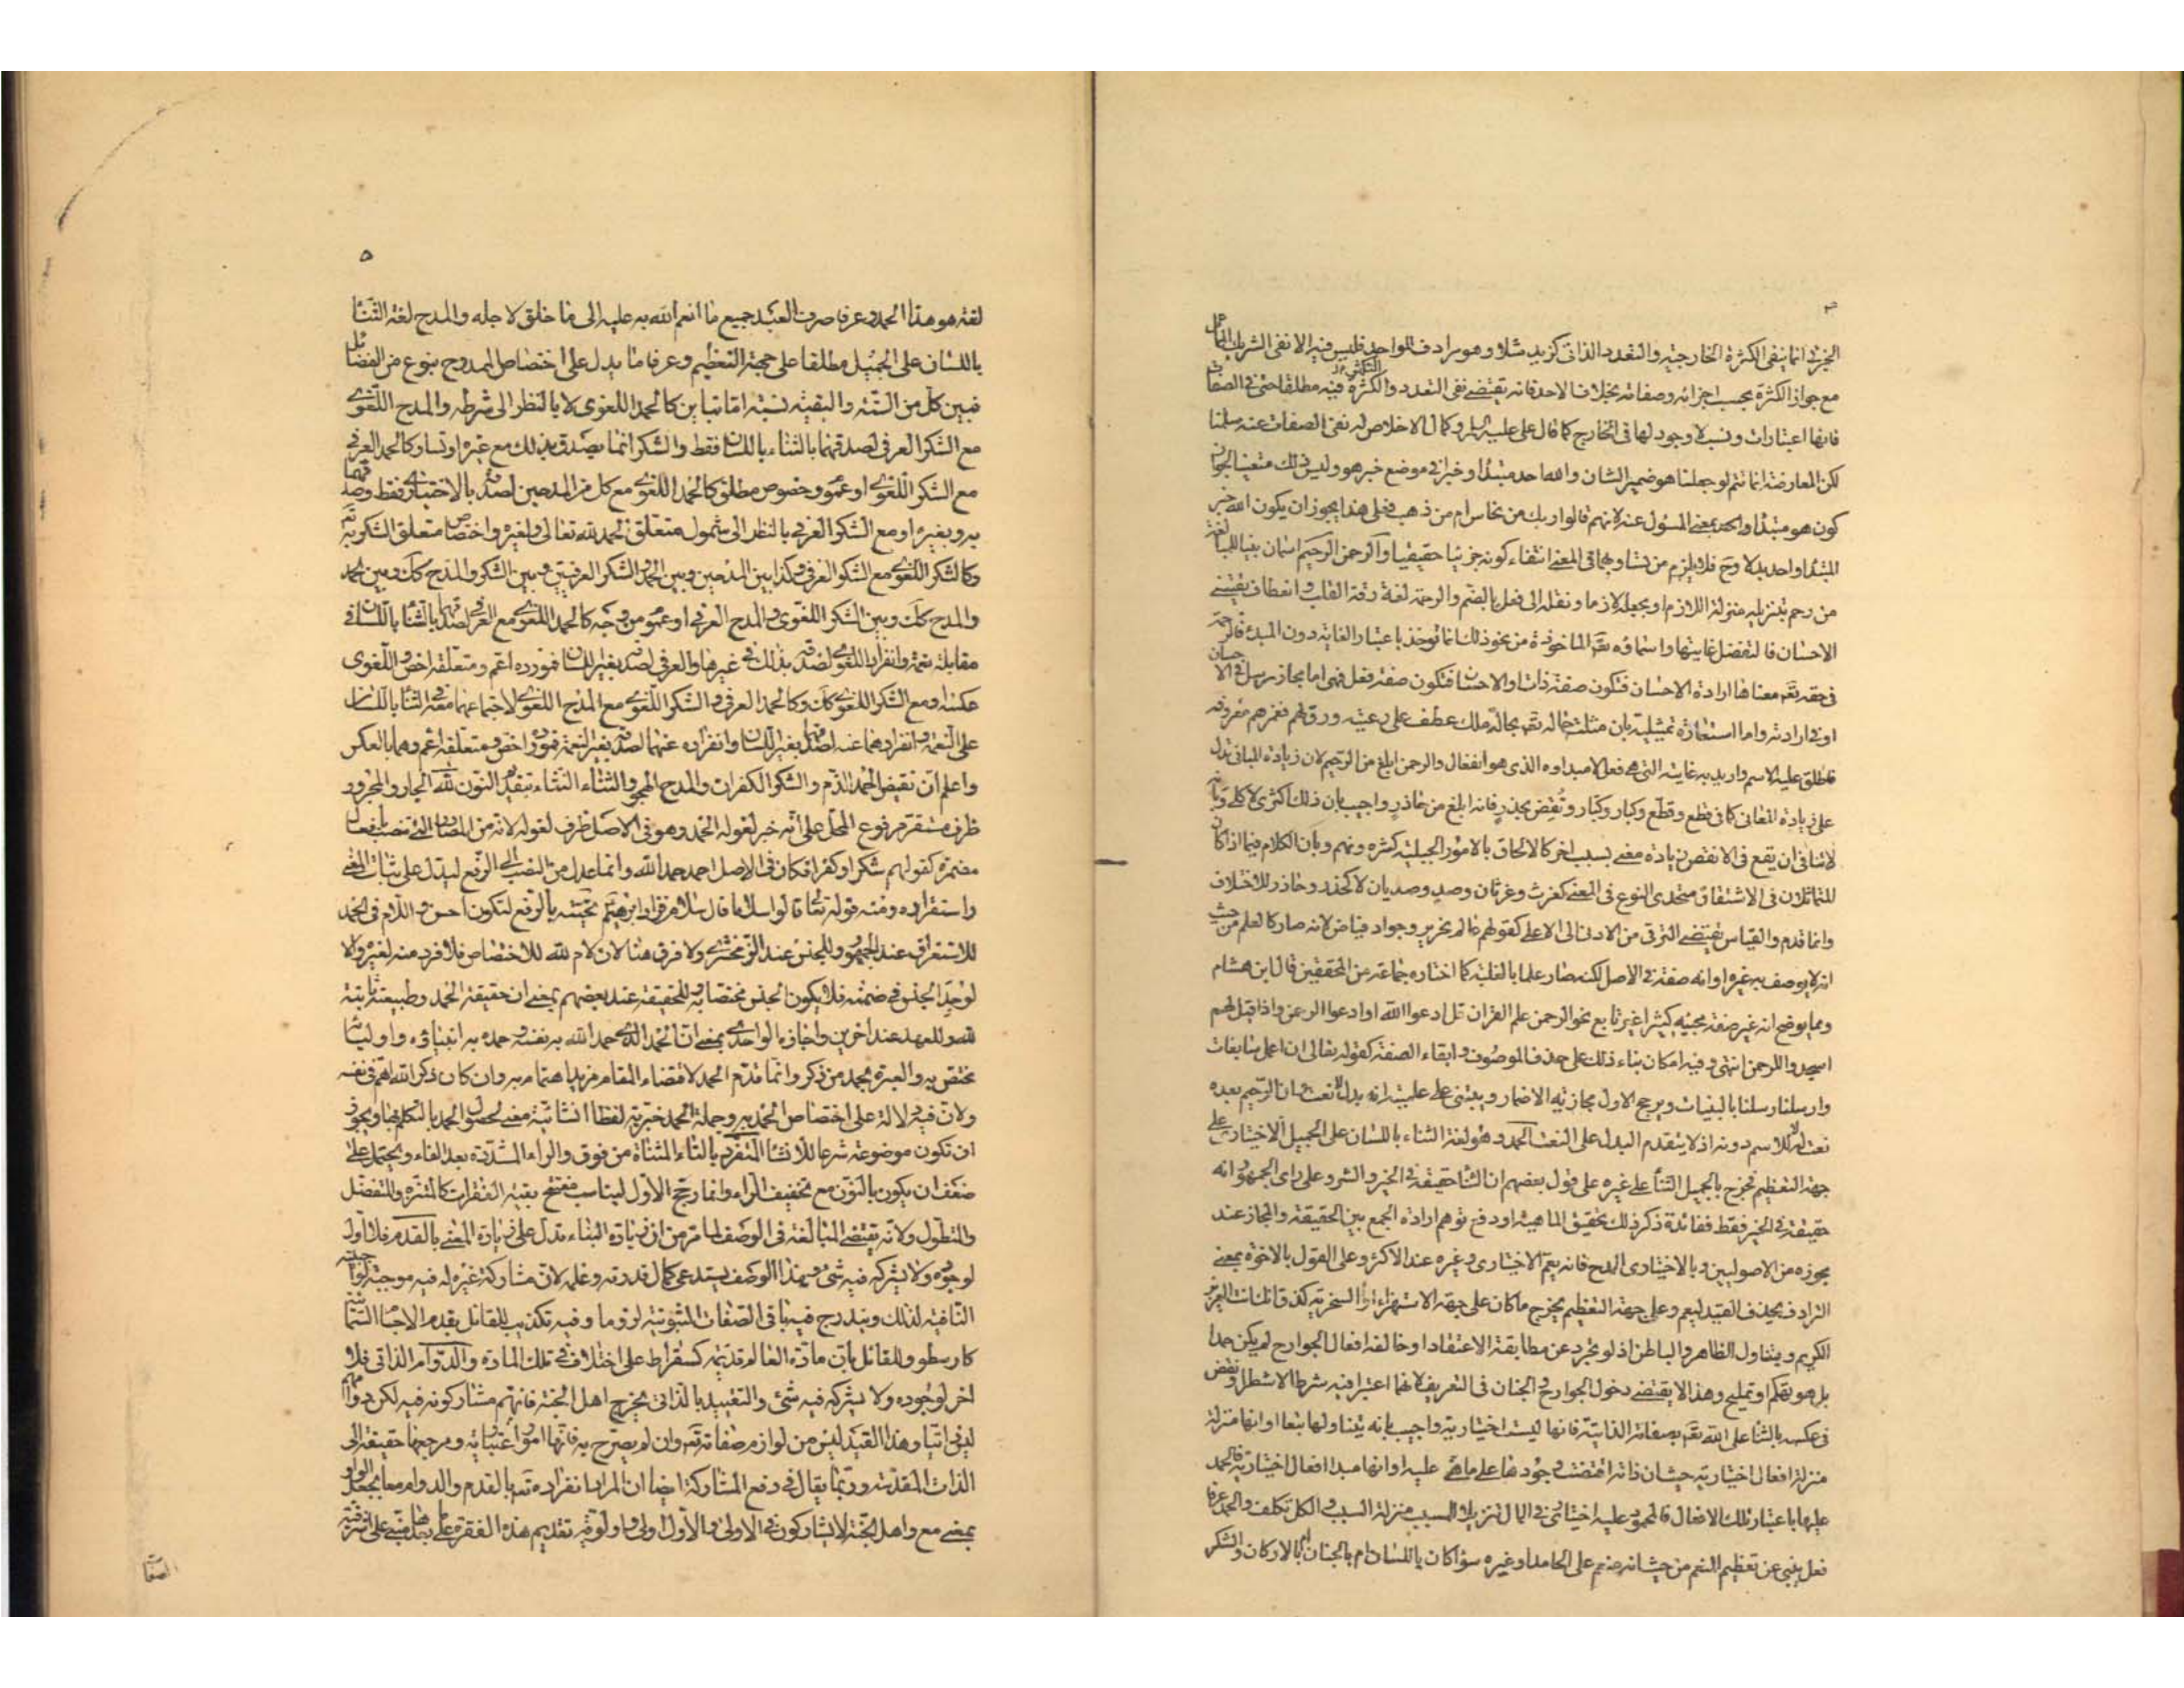 الخبرى انما ينفى الكثرة الخارجيته والتعدد الذاتى كزيد مثلا وهو مرادف للواحد فليس فيه الا نفى الشريك المماثل
مع جواز الكثرة بحسب اجزائه وصفاته بخلاف الاحد فانه يقتضے نفى التعدد والكثرة فيه مطلقا حتى فى الصفات
فانها اعتبارات ونسب لا وجود لها فى الخارج كما قال على عليه السلام وكمال الاخلاص له نفى الصفات عنه سلمنا
لكن المعارضة انما تتم لو جعلنا هو ضمير الشان والله احد مبتدا وخبرا فى موضع خبر هو وليس ذلك متعينا لجواز
كون هو مبتدا واحد بمعنى المسؤل عنه لانهم قالوا ربك من نحاس ام من ذهب فعلى هذا يجوز ان يكون الله خبر
المبتدا واحد بدلا وح فلا يلزم من تساويهما فى المعنى انتفاء كونه جزئيا حقيقيا والرحمن الرحيم اسمان بنيا للمبالغة
من رحم بتنزيله منزلة اللازم او بجعله لازما ونقله الى فعل بالضم والرحمة لغة رقة القلب وانعطاف يقتضے
الاحسان فالتفضل غايتها واسماؤه تعَ الماخوذة من نحو ذلك انما توخذ باعتبار الغاية دون المبدء فالرحمة
فى حقه تعَ معناها ارادة الاحسان فتكون صفة ذات او الاحسان فتكون صفة فعل فهى اما مجاز مرسل فى الاحسان
او فى ارادته واما استعارة تمثيلية بان مثلت حاله تعَ بحالة ملك عطف على رعيته ورق لهم فغمرهم معروفه
فاطلق عليه الاسم واريد به غايته التى هى فعل لا مبداوه الذى هو انفعال والرحمن ابلغ من الرحيم لان زيادة المبانى تدل
على زيادة المعانى كما فى قطع وقطّع وكبار وكبّار ونُقِض بحذر فانه ابلغ من حاذر واجيب بان ذلك اكثرى لا كلى وبانه
لا ينافى ان يقع فى الانقص زيادة معنى بسبب اخر كالالحاق بالامور الجبلية كشره ونهم وبان الكلام فيما اذا كان
المتماثلان فى الاشتقاق متحدى النوع فى المعنى كغرث وغرثان وصدٍ وصديان لا كحذر وحاذر للاختلاف
وانما قدم والقياس يقتضے الترقى من الادنى الى الاعلى كقولهم عالم نحرير وجواد فياض لانه صار كالعلم من حيث
انه لا يوصف به غيره او انه صفة فى الاصل لكنه صار علما بالغلبة كما اختاره جماعة من المحققين قال ابن هشام
ومما يوضح انه غير صفة مجيئه كثيرا غير تابع نحو الرحمن علم القران قل ادعوا الله او ادعوا الرحمن واذا قيل لهم
اسجدوا للرحمن انتهى وفيه امكان بناء ذلك على حذف الموصوف وابقاء الصفة كقوله تعالى ان اعمل سابغات
وارسلنا رسلنا بالبينات ويرجح الاول مجازية الاضمار ويبتنى على علميته انه بدل لا نعت وان الرحيم بعده
نعت له لا للاسم دونه اذ لا يتقدم البدل على النعت الحمد هو لغة الثناء باللسان على الجميل الاختيارى على
جهة التعظيم فخرج بالجميل الثنأ على غيره على قول بعضهم ان الثنا حقيقة فى الخير والشر وعلى راى الجمهور انه
حقيقة فى الخير فقط ففائدة ذكر ذلك تحقيق الماهية او دفع توهم ارادة الجمع بين الحقيقة والمجاز عند
مجوزه من الاصوليين وبالاختيارى المدح فانه يعم الاختيارى وغيره عند الاكثر وعلى القول بالاخوة بمعنى
الترادف يحذف القيد ليعم وعلى جهة التعظيم يخرج ما كان على جهة الاستهزاء او السخرية كذق انك انت العزيز
الكريم ويتناول الظاهر والباطن اذ لو تجرد عن مطابقة الاعتقاد او خالفه افعال الجوارح لم يكن حمدا
بل هو تهكم او تمليح وهذا لا يقتضے دخول الجوارح والجنان فى التعريف لانهما اعتبرا فيه شرطا لا شطرا ونقض
فى عكسه بالثنا على الله تعَ بصفاته الذاتية فانها ليست اختيارية واجيب بانه يتناولها تبعا او انها منزلة
منزلة افعال اختيارية حيث ان ذاته اقتضت وجودها على ما هے عليه او انها مبدا افعال اختيارية فالحمد
عليها باعتبار تلك الافعال فالمحمود عليه اختيارى فى المال لتنزيل المسبب منزلة السبب والكل تكلف والحمد عرفا
فعل ينبئ عن تعظيم المنعم من حيث انه منعم على الحامد او غيره سواء كان باللسان ام بالجنان ام بالاركان والشكر
٥
لغة هو هذا الحمد وعرفا صرف العبد جميع ما انعم الله به عليه الى ما خلق لاجله والمدح لغة الثنأ
باللسان على الجميل مطلقا على جهة التعظيم وعرفا ما يدل على اختصاص الممدوح بنوع من الفضائل
فبين كل من الستة والبقية نسبة اما تباين كالحمد اللغوى لا بالنظر الى شرطه والمدح اللغوے
مع الشكر العرفى لصدقهما بالثناء باللسان فقط والشكر انما يصدق بذلك مع غيره او تساو كالحمد العرفى
مع الشكر اللغوے او عموم وخصوص مطلق كالحمد اللغوے مع كل من المدحين لصدقه بالاختيارى فقط وصدقهما
به وبغيره او مع الشكر العرفى بالنظر الى شمول متعلق الحمد لله تعالى ولغيره واختصاص متعلق الشكر به تعَ
وكالشكر اللغوے مع الشكر العرفى وكذا بين المدحين وبين الحمد والشكر العرفيين وبين الشكر والمدح كك وبين الحمد
والمدح كك وبين الشكر اللغوى والمدح العرفى او عموم من وجه كالحمد اللغوے مع العرفى لصدقهما بالثنا باللسان فى
مقابلة نعمة وانفراد اللغوے لصدقه بذلك فى غيرها والعرفى لصدقه بغير اللسان فمورده اعم ومتعلقه اخص واللغوى
عكسه ومع الشكر اللغوے كك وكالحمد العرفى والشكر اللغوے مع المدح اللغوے لاجتماعهما معه فى الثنا باللسان
على النعمة وانفرادهما عنه لصدقهما بغير اللسان وانفراده عنهما لصدقه بغير النعمة فمورده اخص ومتعلقه اعم وهما بالعكس
واعلم ان نقيض الحمد الذم والشكر الكفران والمدح الهجو والثناء النثاء بتقديم النون لله الجار والمجرور
ظرف مستقر مرفوع المحل على انه خبر لقوله الحمد وهو فى الاصل ظرف لغو له لانه من المصادر التے تنصب بافعال
مضمرة كقولهم شكرا وكفرا فكان فى الاصل احمد حمدا لله وانما عدل من النصب الى الرفع ليدل على ثبات المعنے
واستقراره ومنه قوله تعالى قالوا سلاما قال سلام قرار ابرهيم تحيته بالرفع لتكون احسن واللام فى الحمد
للاستغراق عند الجمهور وللجنس عند الزمخشرے ولا فرق هنا لان لام لله للاختصاص فلا فرد منه لغيره والا
لوجد الجنس فى ضمنه فلا يكون الجنس مختصا به وللحقيقة عند بعضهم بمعنے ان حقيقة الحمد وطبيعته ثابتة
لله وللعهد عند اخرين واجازه الواحدے بمعنے ان الحمد الذے حمد الله به نفسه وحمده به انبياؤه واولياؤه
مختص به والعبرة بحمد من ذكر وانما قدم الحمد لاقتضاء المقام مزيد اهتمام به وان كان ذكر الله اهم فى نفسه
ولان فيه دلالة على اختصاص الحمد به وجملة الحمد خبرية لفظا انشائية معنے لحصول الحمد بالتكلم بها ويجوز
ان تكون موضوعة شرعا للانشا المتفرد بالتاء المثناة من فوق والراء المشددة بعد الفاء ويحتمل على
ضعف ان يكون بالنون مع تخفيف الراء وانما رجح الاول ليناسب مفتتح بقية الفقرات كالمتنزه والمتفضل
والمتطول ولانه يقتضے المبالغة فى الوصف لما مر من ان زيادة البناء تدل على زيادة المعنے بالقدم فلا اول
لوجوده ولا يشركه فيه شئ وهذا الوصف يستدعى كمال قدرته وعلمه لان مشاركة غيره له فيه موجبة لواحديته
النافية لذلك ويندرج فيه باقى الصفات الثبوتية لزوما وفيه تكذيب للقائل بقدم الاجسام السماوية
كارسطو وللقائل بان مادة العالم قديمة كسقراط على اختلاف فى تلك المادة والدوام الذاتى فلا
اخر لوجوده ولا يشركه فيه شئ والتقييد بالذاتى يخرج اهل الجنة فانهم مشاركونه فيه لكن دوامهم
ليس ذاتيا وهذا القيد ليس من لوازم صفاته تعَ وان لم يصرح به فانها امور اعتبارية ومرجعها حقيقة الى
الذات المقدسة وربما يقال فى دفع المشاركة ايضا ان المراد انفراده تعَ بالقدم والدوام معا بجعل الواو
بمعنے مع واهل الجنة لا يشاركونه فى الاولى والاول اولى واولوية تقديم هذه الفقرة على بعدها مبنے على شرفية